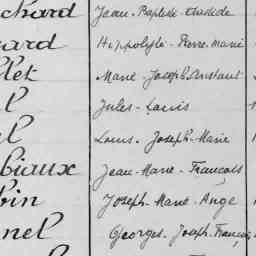 chard Jean-Baptiste
ard Hippolyte-Pierre-Marie
llet Marie-Joseph-Constant
l Jules-Louis
el Louis-Joseph-Marie
biaux Jean-Marie-François
bin Joseph-Marie-Ange
nel Georges-Joseph-François